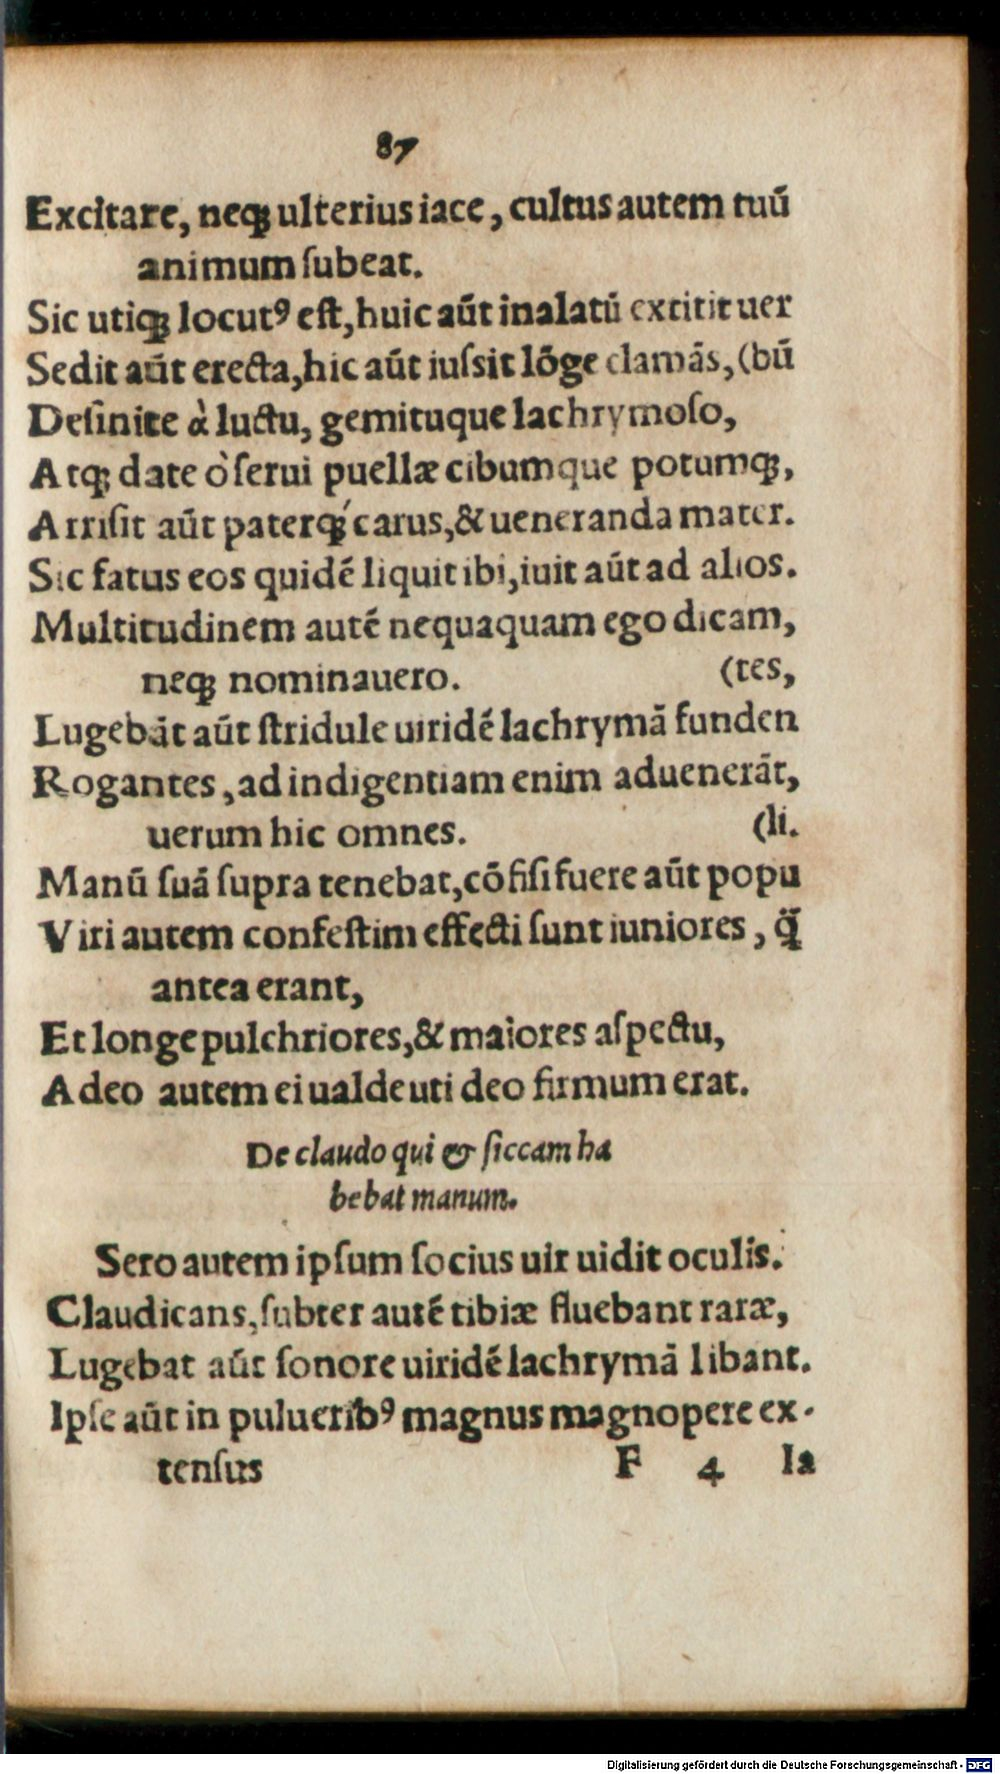 87
Excitare, neqꝫ ulterius iace, cultus autem tuũ
animum ſubeat.
Sic utiqꝫ locutꝰ eſt, huic aũt inalatũ extitit uer
Sedit aũt erecta, hic aũt iuſsit lõge clamãs, (bũ
Deſinite à luctu, gemituque lachrymoſo,
Atqꝫ date ò ſerui puellæ cibumque potumqꝫ,
Arriſit aũt paterqꝫ́ carus, & ueneranda mater.
Sic fatus eos quidẽ liquit ibi, iuit aũt ad alios.
Multitudinem autẽ nequaquam ego dicam,
neqꝫ nominauero. (tes,
Lugebãt aũt ſtridule uiridẽ lachrymã funden
Rogantes, ad indigentiam enim aduenerãt,
uerum hic omnes. (li.
Manũ ſuã ſupra tenebat, cõfiſi fuere aũt popu
Viri autem confeſtim effecti ſunt iuniores, q̃
antea erant,
Et longe pulchriores, & maiores aſpectu,
Adeo autem ei ualde uti deo firmum erat.
De claudo qui & ſiccam ha
bebat manum.
Sero autem ipſum ſocius uir uidit oculis.
Claudicans, ſubter autẽ tibiæ fluebant raræ,
Lugebat aũt ſonore uiridẽ lachrymã libant.
Ipſe aũt in puluerıbꝰ magnus magnopere ex-
tenſus F 4 Ia
Digitalisierung gefördert durch die Deutsche Forschungsgemeinschaft - DFG